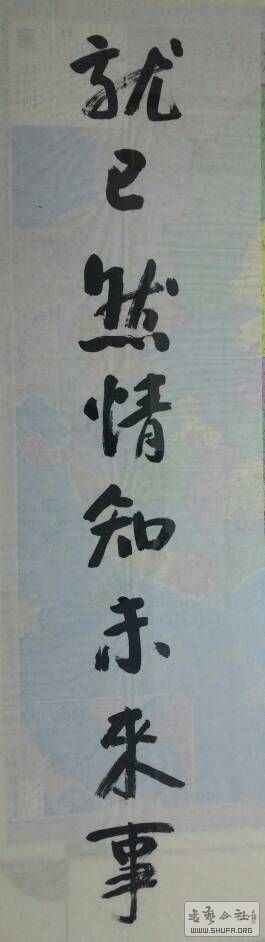 就已然情知未來事
書藝公社
WWW.SHUFA.ORG